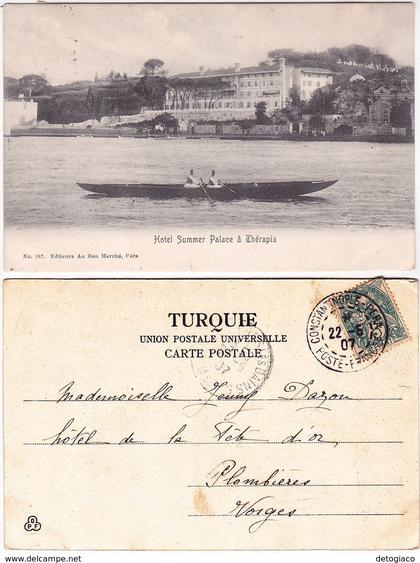 Hotel Summer Palace à Thérapia
No. 187. Editeurs Au Bon Marché, Péra
TURQUIE
UNION POSTALE UNIVERSELLE
CARTE POSTALE
CONSTANTINOPLE-PERA
22 5
07
POSTE-FRANÇ
BAINS
07
Mademoiselle Jenny Dazon
hôtel de la Tête d'or
Plombières
Vosges
O P F
delcampe.net
detogiaco